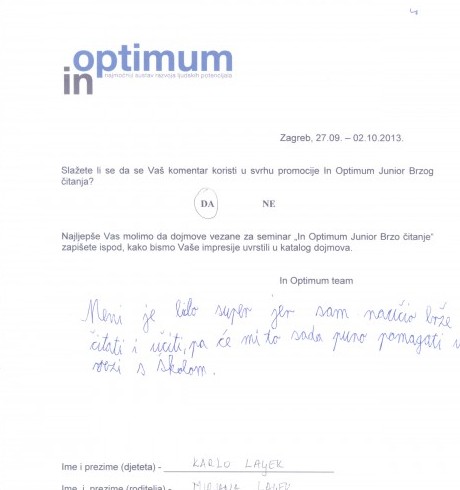 in optimum
najmoćniji sustav razvoja ljudskih potencijala
Zagreb, 27.09. – 02.10.2013.
Slažete li se da se Vaš komentar koristi u svrhu promocije In Optimum Junior Brzog
čitanja?
DA NE
Najljepše Vas molimo da dojmove vezane za seminar „In Optimum Junior Brzo čitanje“
zapišete ispod, kako bismo Vaše impresije uvrstili u katalog dojmova.
In Optimum team
Meni je bilo super jer sam naučio brže
čitati i učiti, pa će mi to sada puno pomagati u
vezi s školom.
Ime i prezime (djeteta) - KARLO
Ime i prezime (roditelja) - MIRJANA